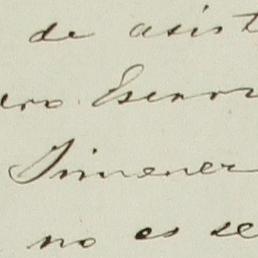 de asist
dro Escno
Jimenez
no es se